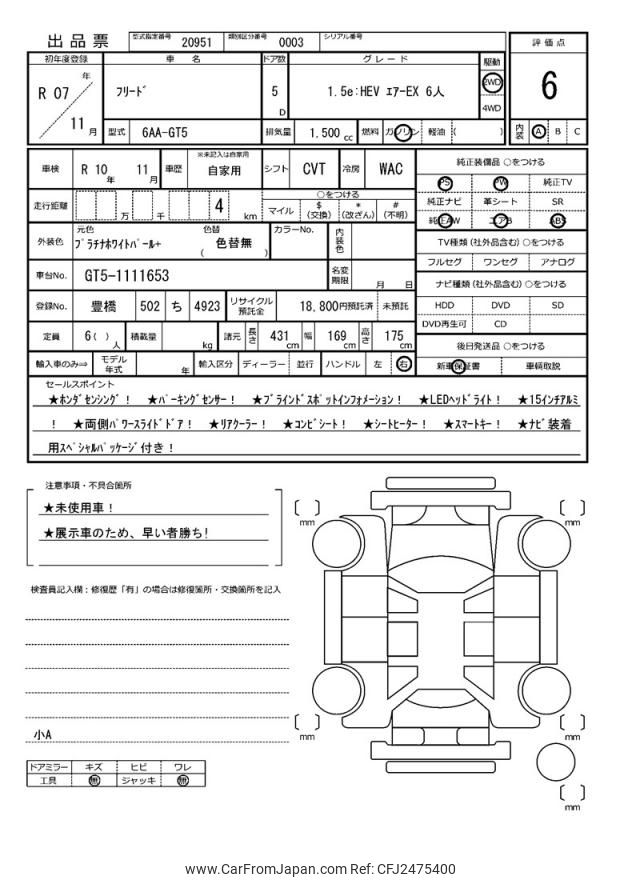 出品票 型式指定番号 20951 類別区分番号 0003 シリアル番号
初年度登録 車 名 ドア数 グレード 駆動 評価点
R 07 年 11 月 フリード 5 D 1.5e:HEV エアーEX 6人 2WD 4WD 6
型式 6AA-GT5 排気量 1.500 cc 燃料 ガソリン 軽油 ( ) 内装 A B C
車検 R 10 年 11 月 車歴 ※未記入は自家用 自家用 シフト CVT 冷房 WAC 純正装備品 ○をつける
PS PW 純正TV
走行距離 万 千 4 km ○をつける マイル $(交換) *(改ざん) #(不明) 純正ナビ 革シート SR
純正AW エアB ABS
外装色 元色 プラチナホワイトパール+ 色替 ( 色替無 ) カラーNo. 内装色 TV種類 (社外品含む) ○をつける
フルセグ ワンセグ アナログ
車台No. GT5-1111653 名変期限 月 日 ナビ種類 (社外品含む) ○をつける
登録No. 豊橋 502 ち 4923 リサイクル預託金 18,800円預託済 未預託 HDD DVD SD
DVD再生可 CD
定員 6( )人 積載量 kg 諸元 長さ 431 cm 幅 169 cm 高さ 175 cm 後日発送品 ○をつける
輸入車のみ⇨ モデル年式 年 輸入区分 ディーラー 並行 ハンドル 左 右 新車保証書 車輌取説
セールスポイント
★ホンダセンシング! ★パーキングセンサー! ★ブラインドスポットインフォメーション! ★LEDヘッドライト! ★15インチアルミ
! ★両側パワースライドドア! ★リアクーラー! ★コンビシート! ★シートヒーター! ★スマートキー! ★ナビ装着
用スペシャルパッケージ付き!
注意事項・不具合箇所
★未使用車!
★展示車のため、早い者勝ち!
検査員記入欄:修復歴「有」の場合は修復箇所・交換箇所を記入
小A
ドアミラー キズ ヒビ ワレ
工具 無 ジャッキ 無
mm
mm
mm
mm
mm
www.CarFromJapan.com Ref: CFJ2475400